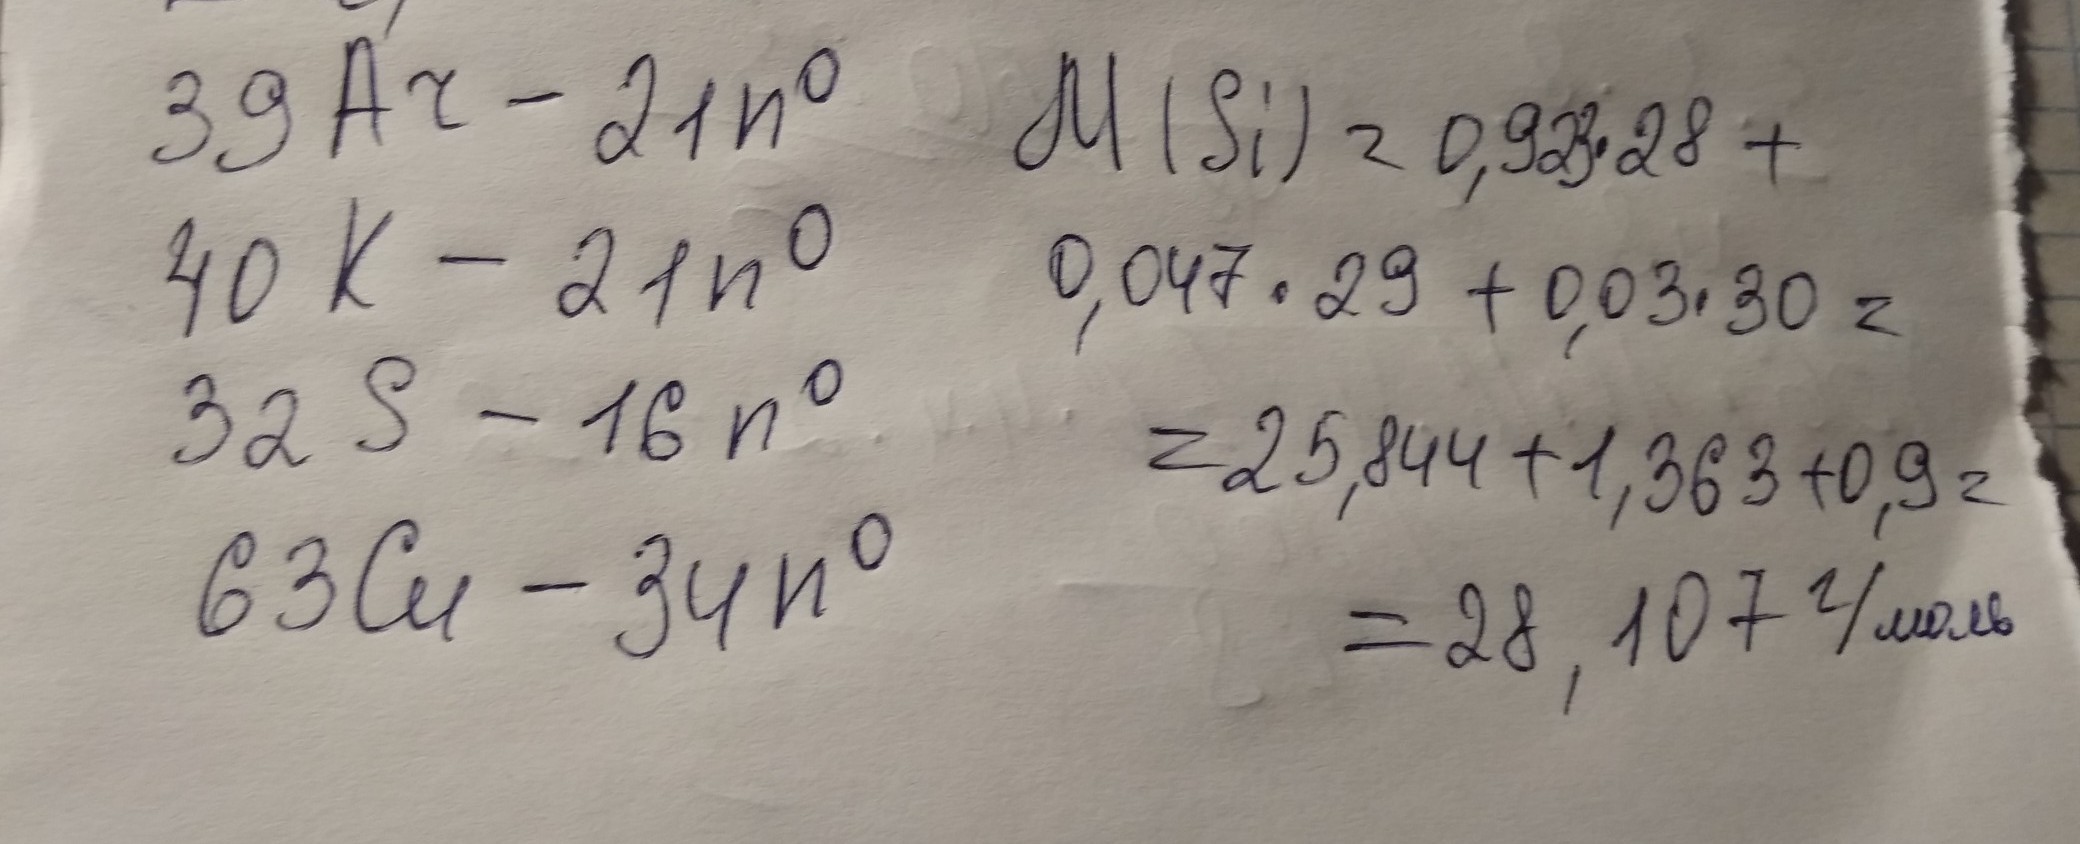 39Ar - 21n⁰
40K - 21n⁰
32S - 16n⁰
63Cu - 34n⁰
M(Si) = 0,923·28 +
0,047·29 + 0,03·30 =
= 25,844 + 1,363 + 0,9 =
= 28,107 г/моль